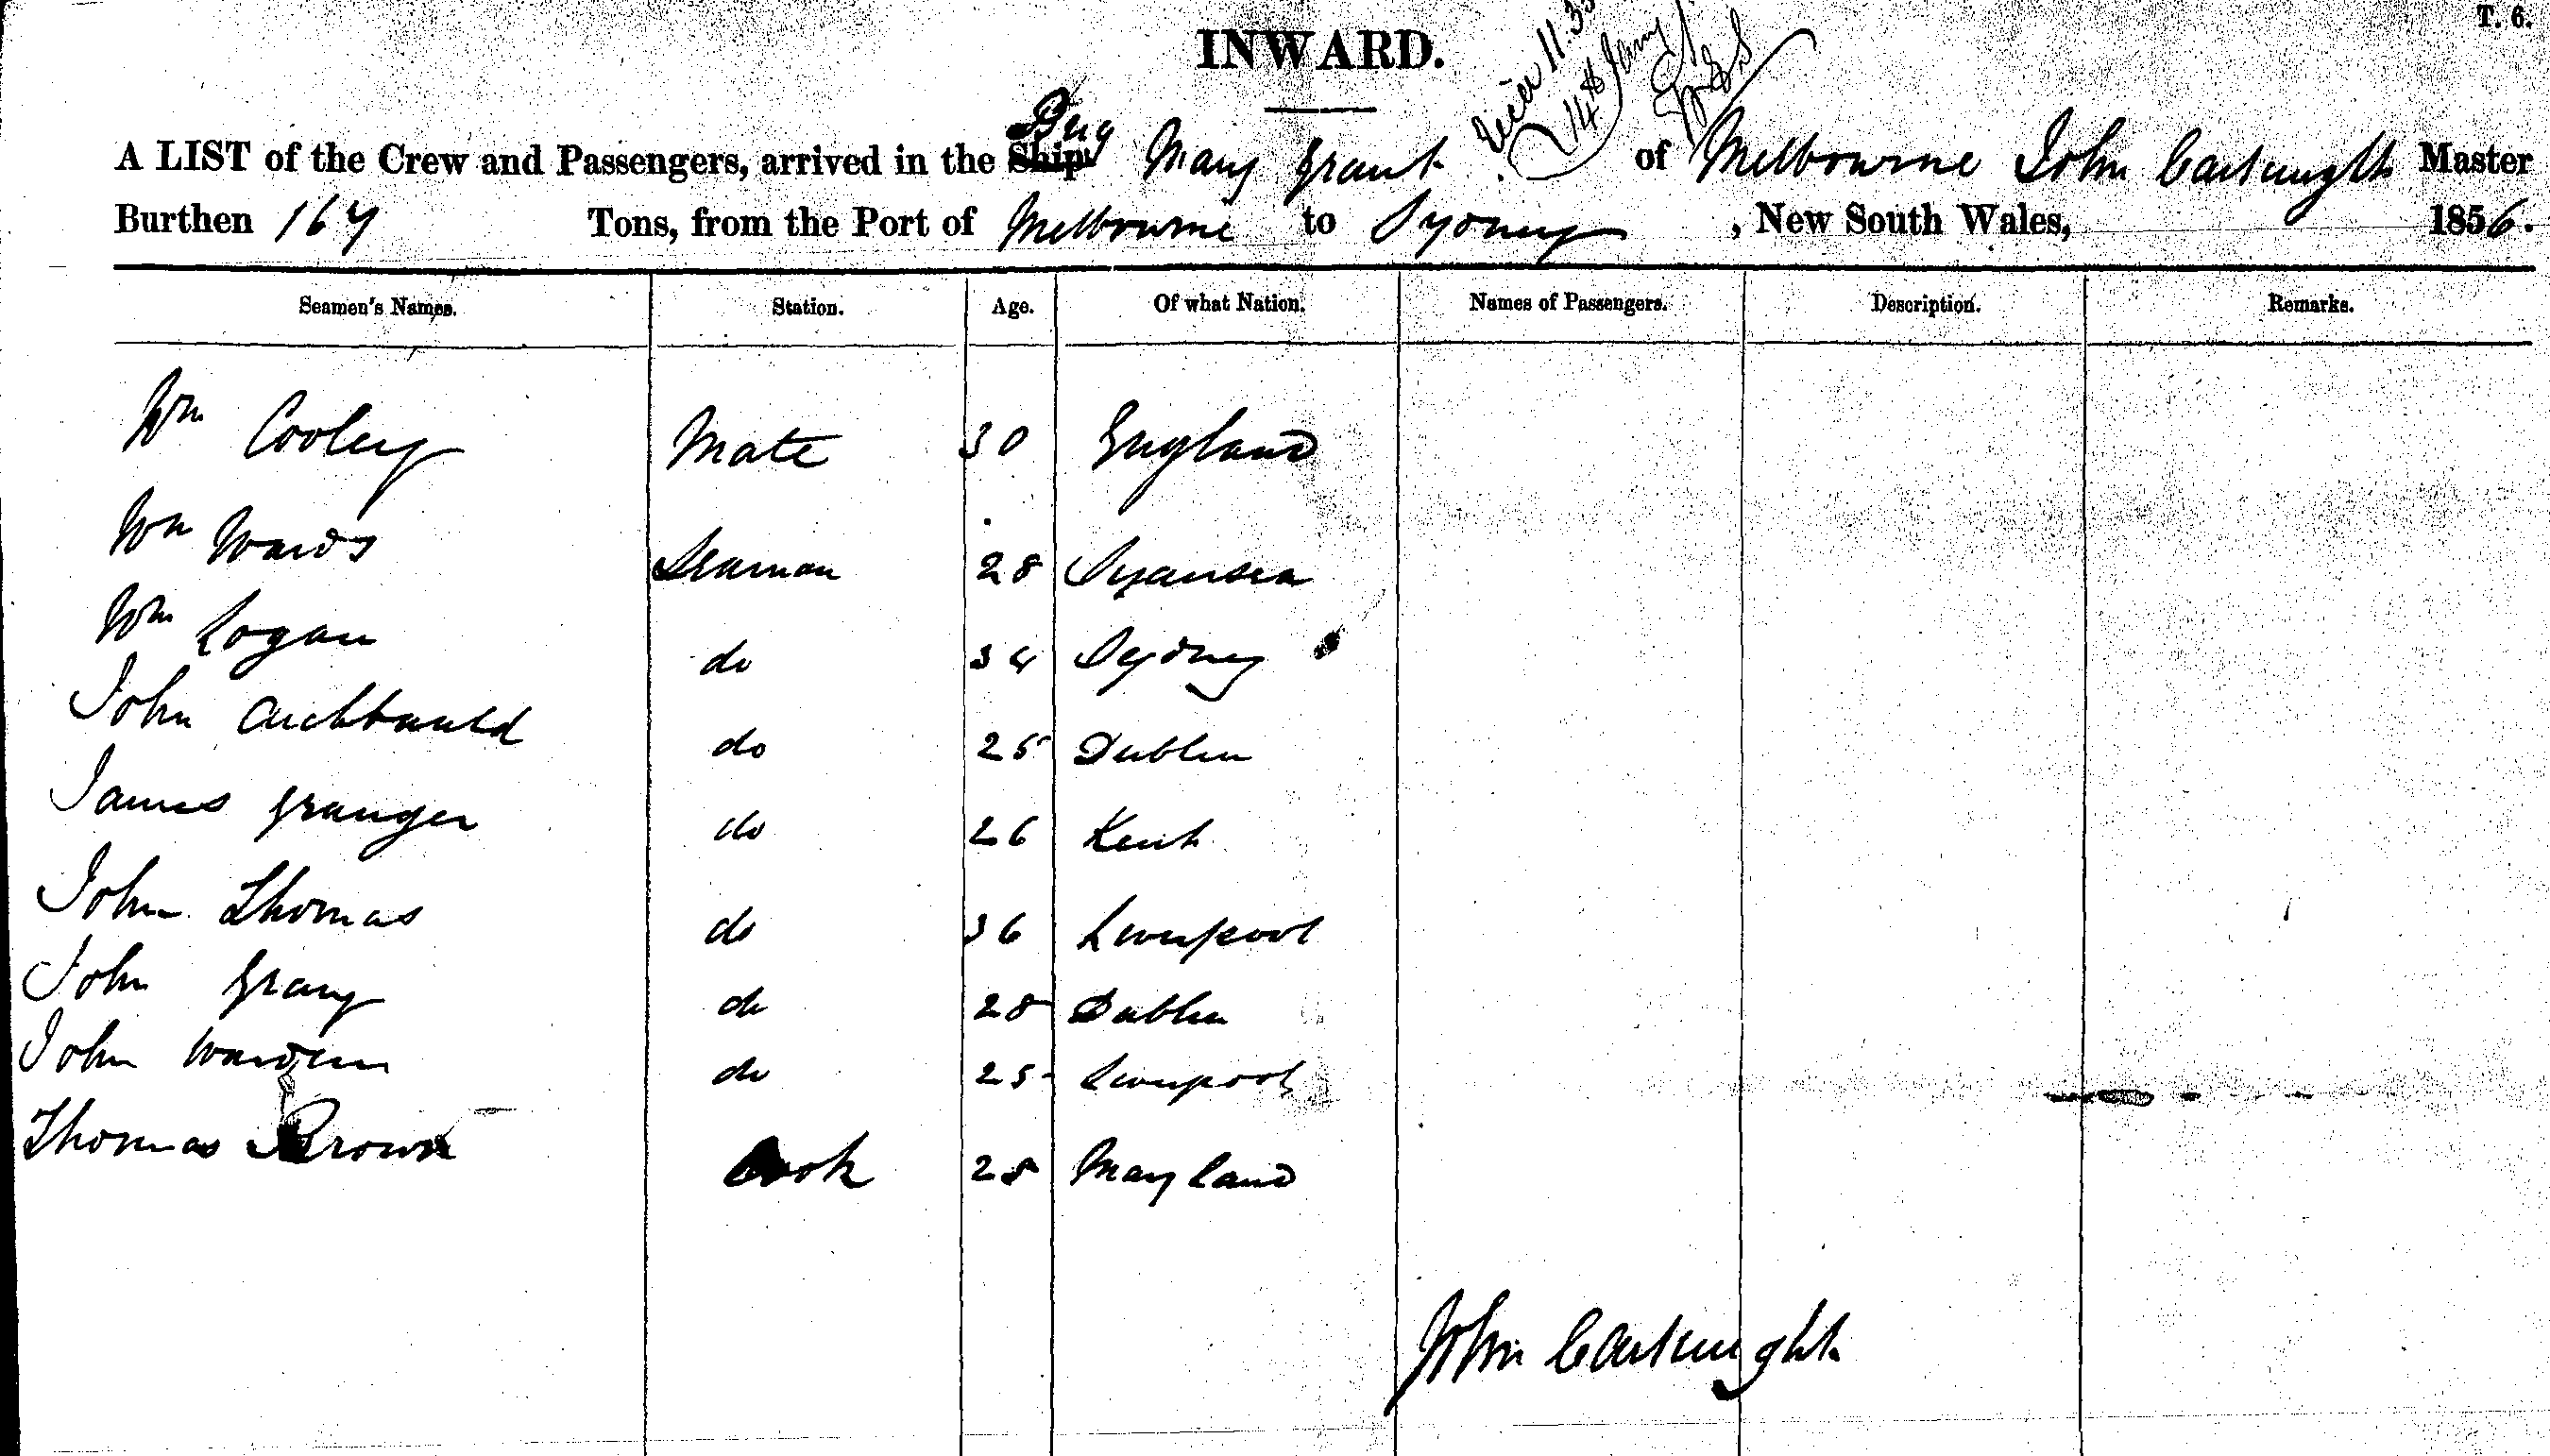 T. 6.
INWARD.
14th Jany
A LIST of the Crew and Passengers, arrived in the Ship Brig Mary Grant of Melbourne John Cartwright Master
Burthen 164 Tons, from the Port of Melbourne to Sydney , New South Wales, 1856.
Seamen's Names. Station. Age. Of what Nation. Names of Passengers. Description. Remarks.
Wm Cooley Mate 30 England
Wm Wards Seaman 28 Swansea
Wm Logan do 34 Sydney
John Archbauld do 25 Dublin
James Granger do 26 Kent
John Thomas do 36 Liverpool
John Grany do 28 Dublin
John Warden do 25 Liverpool
Thomas Brown Cook 28 Maryland
John Cartwright